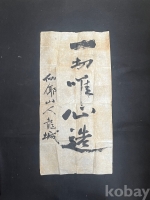 一切唯心造
仙鄕山人 龍城
kobay